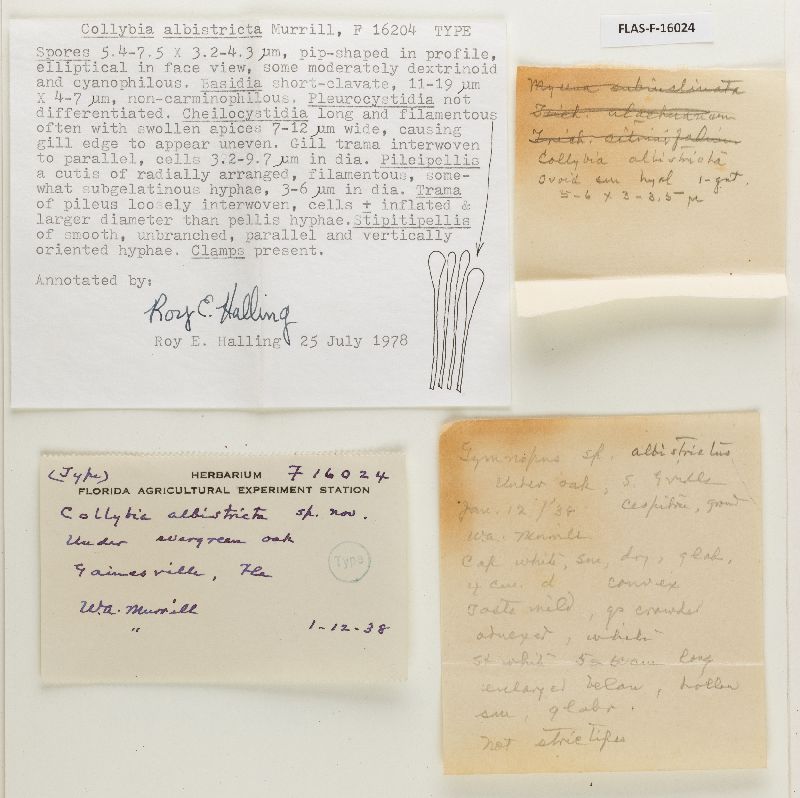 Collybia albistricta Murrill, F 16204 TYPE
Spores 5.4-7.5 X 3.2-4.3 µm, pip-shaped in profile,
elliptical in face view, some moderately dextrinoid
and cyanophilous. Basidia short-clavate, 11-19 µm
X 4-7 µm, non-carminophilous. Pleurocystidia not
differentiated. Cheilocystidia long and filamentous
often with swollen apices 7-12 µm wide, causing
gill edge to appear uneven. Gill trama interwoven
to parallel, cells 3.2-9.7 µm in dia. Pileipellis
a cutis of radially arranged, filamentous, some-
what subgelatinous hyphae, 3-6 µm in dia. Trama
of pileus loosely interwoven, cells ± inflated &
larger diameter than pellis hyphae. Stipitipellis
of smooth, unbranched, parallel and vertically
oriented hyphae. Clamps present.
Annotated by:
Roy E. Halling
Roy E. Halling 25 July 1978
FLAS-F-16024
Collybia albistricta
ovoid sm hyal 1-gut.
5-6 X 3-3.5 µ
(Type) HERBARIUM F 16024
FLORIDA AGRICULTURAL EXPERIMENT STATION
Collybia albistricta sp. nov.
Under evergreen oak
Type
Gainesville, Fla
W.A. Murrill
" 1-12-38
Gymnopus sp. albistrictus
Under oak, S. Gville
Jan. 12 '38 Cespitose, ground
W.A. Murrill
Cap white, sm, dry, glab,
4 cm. d convex
Taste mild, gs crowded
adnexed, white
St white 5-6 cm long
enlarged below, hollow
sm, glabr.
Not strictipes